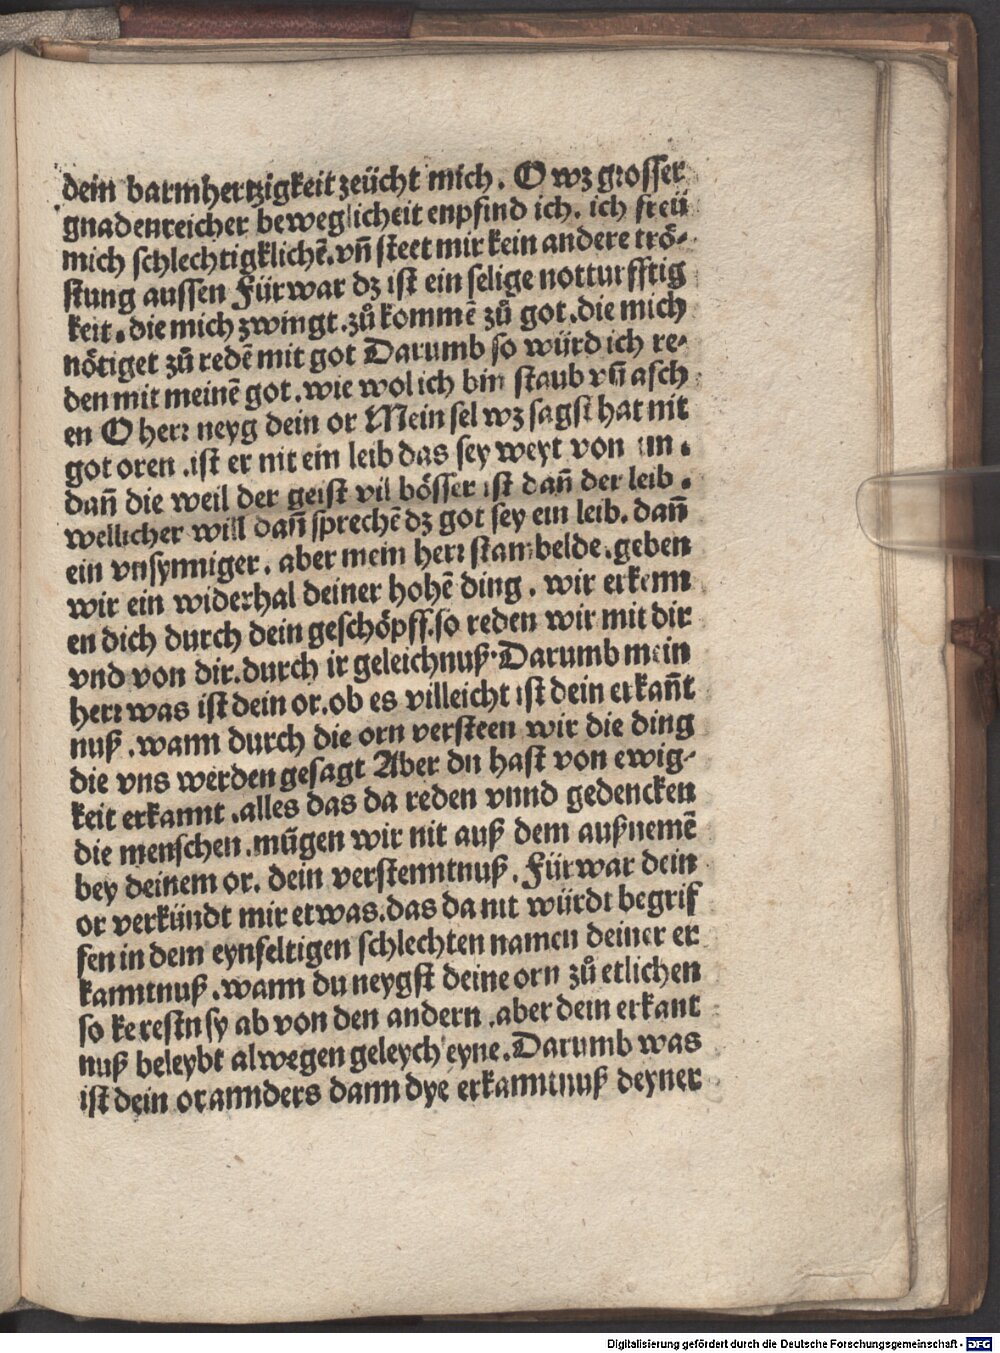 dein barmhertzigkeit zeücht mich. O wz grosser
gnadenreicher beweglicheit enpfind ich. ich freü
mich schlechtigklichẽ. vñ steet mir kein andere trö⸗
stung aussen Fürwar dz ist ein selige notturfftig
keit. die mich zwingt. zů kommẽ zů got. die mich
nötiget zů redẽ mit got Darumb so würd ich re⸗
den mit meinẽ got. wie wol ich bin staub vñ asch
en O herr neyg dein or Mein sel wz sagst hat nit
got oren .ist er nit ein leib das sey weyt von im .
dañ die weil der geist vil bösser ist dañ der leib .
wellicher will dañ sprechẽ dz got sey ein leib. dañ
ein vnsynniger. aber mein herr stambelde. geben
wir ein widerhal deiner hohẽ ding. wir erkenn
en dich durch dein geschöpff. so reden wir mit dir
vnd von dir. durch ir geleichnuß. Darumb mein
herr was ist dein or. ob es villeicht ist dein erkañt
nuß .wann durch die orn versteen wir die ding
die vns werden gesagt Aber du hast von ewig⸗
keit erkannt .alles das da reden vnnd gedencken
die menschen .mügen wir nit auß dem außnemẽ
bey deinem or. dein verstenntnuß. Fürwar dein
or verkündt mir etwas. das da nit würdt begrif
fen in dem eynfeltigen schlechten namen deiner er
kanntnuß .wann du neygst deine orn zů etlichen
so kerestu sy ab von den andern .aber dein erkant
nuß beleybt alwegen geleych eyne. Darumb was
ist dein or annders dann dye erkanntnuß deyner
Digitalisierung gefördert durch die Deutsche Forschungsgemeinschaft - DFG